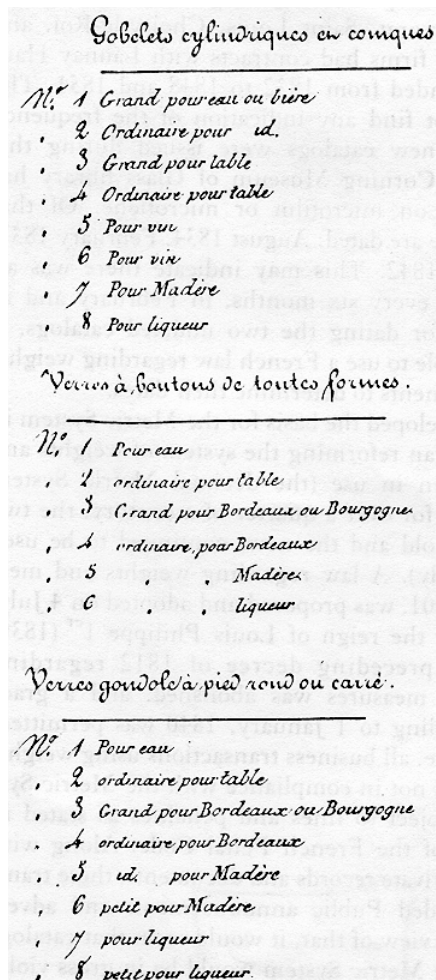 Gobelets cylindriques en coniques
Nos 1 Grand, pour eau ou bière
" 2 Ordinaire pour id.
" 3 Grand pour table
" 4 Ordinaire pour table.
" 5 Pour vin
" 6 Pour vin
" 7 Pour Madère
" 8 Pour liqueur
Verres à boutons de toutes formes.
Nos 1 Pour eau
" 2 ordinaire pour table
" 3 Grand pour Bordeaux ou Bourgogne
" 4 ordinaire, pour Bordeaux
" 5 " " Madère
" 6 " " liqueur
Verres gondole à pied rond ou carré.
Nos 1 Pour eau
" 2 ordinaire pour table
" 3 Grand pour Bordeaux ou Bourgogne
" 4 ordinaire pour Bordeaux
" 5 id. pour Madère
" 6 petit pour Madère
" 7 pour liqueur
" 8 petit pour liqueur.